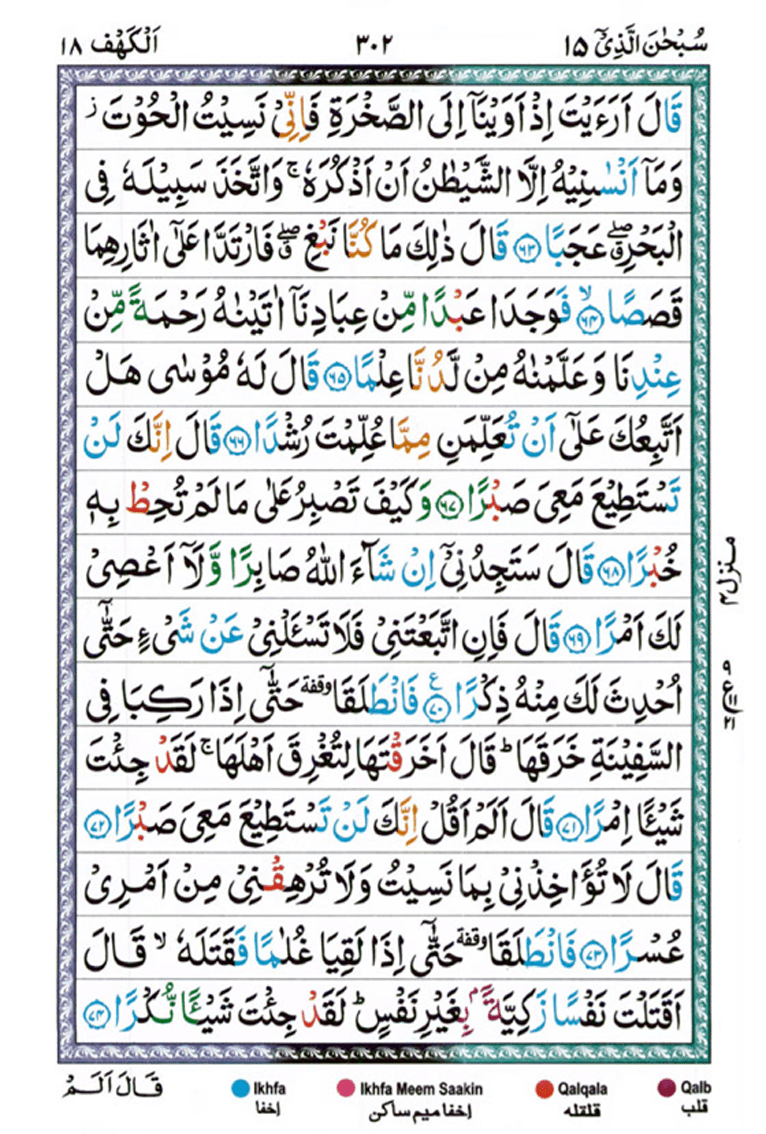 سُبْحٰنَ الَّذِیْۤ ١٥
٣٠٢
اَلْكَهْف ١٨
قَالَ اَرَءَیْتَ اِذْ اَوَیْنَاۤ اِلَی الصَّخْرَةِ فَاِنِّیْ نَسِیْتُ الْحُوْتَ ز
وَمَاۤ اَنْسٰىنِیْهُ اِلَّا الشَّیْطٰنُ اَنْ اَذْكُرَهٗ ۚ وَاتَّخَذَ سَبِیْلَهٗ فِی
الْبَحْرِ ۖۗ عَجَبًا ﴿٦٣﴾ قَالَ ذٰلِكَ مَا كُنَّا نَبْغِ ۖۗ فَارْتَدَّا عَلٰۤی اٰثَارِهِمَا
قَصَصًا ۙ﴿٦٤﴾ فَوَجَدَا عَبْدًا مِّنْ عِبَادِنَاۤ اٰتَیْنٰهُ رَحْمَةً مِّنْ
عِنْدِنَا وَعَلَّمْنٰهُ مِنْ لَّدُنَّا عِلْمًا ﴿٦٥﴾ قَالَ لَهٗ مُوْسٰی هَلْ
اَتَّبِعُكَ عَلٰۤی اَنْ تُعَلِّمَنِ مِمَّا عُلِّمْتَ رُشْدًا ﴿٦٦﴾ قَالَ اِنَّكَ لَنْ
تَسْتَطِیْعَ مَعِیَ صَبْرًا ﴿٦٧﴾ وَكَیْفَ تَصْبِرُ عَلٰی مَا لَمْ تُحِطْ بِهٖ
خُبْرًا ﴿٦٨﴾ قَالَ سَتَجِدُنِیْۤ اِنْ شَآءَ اللّٰهُ صَابِرًا وَّلَاۤ اَعْصِیْ
لَكَ اَمْرًا ﴿٦٩﴾ قَالَ فَاِنِ اتَّبَعْتَنِیْ فَلَا تَسْـَٔلْنِیْ عَنْ شَیْءٍ حَتّٰۤی
اُحْدِثَ لَكَ مِنْهُ ذِكْرًا ﴿٧٠﴾ ع فَانْطَلَقَا وقفة حَتّٰۤی اِذَا رَكِبَا فِی
السَّفِیْنَةِ خَرَقَهَا ؕ قَالَ اَخَرَقْتَهَا لِتُغْرِقَ اَهْلَهَا ۚ لَقَدْ جِئْتَ
شَیْـًٔا اِمْرًا ﴿٧١﴾ قَالَ اَلَمْ اَقُلْ اِنَّكَ لَنْ تَسْتَطِیْعَ مَعِیَ صَبْرًا ﴿٧٢﴾
قَالَ لَا تُؤَاخِذْنِیْ بِمَا نَسِیْتُ وَلَا تُرْهِقْنِیْ مِنْ اَمْرِیْ
عُسْرًا ﴿٧٣﴾ فَانْطَلَقَا وقفة حَتّٰۤی اِذَا لَقِیَا غُلٰمًا فَقَتَلَهٗ ۙ قَالَ
اَقَتَلْتَ نَفْسًا زَكِیَّةًۢ بِغَیْرِ نَفْسٍ ؕ لَقَدْ جِئْتَ شَیْـًٔا نُّكْرًا ﴿٧٤﴾
منزل ٤
قَالَ اَلَمْ
Ikhfa
إخفا
Ikhfa Meem Saakin
إخفا میم ساکن
Qalqala
قلقله
Qalb
قلب